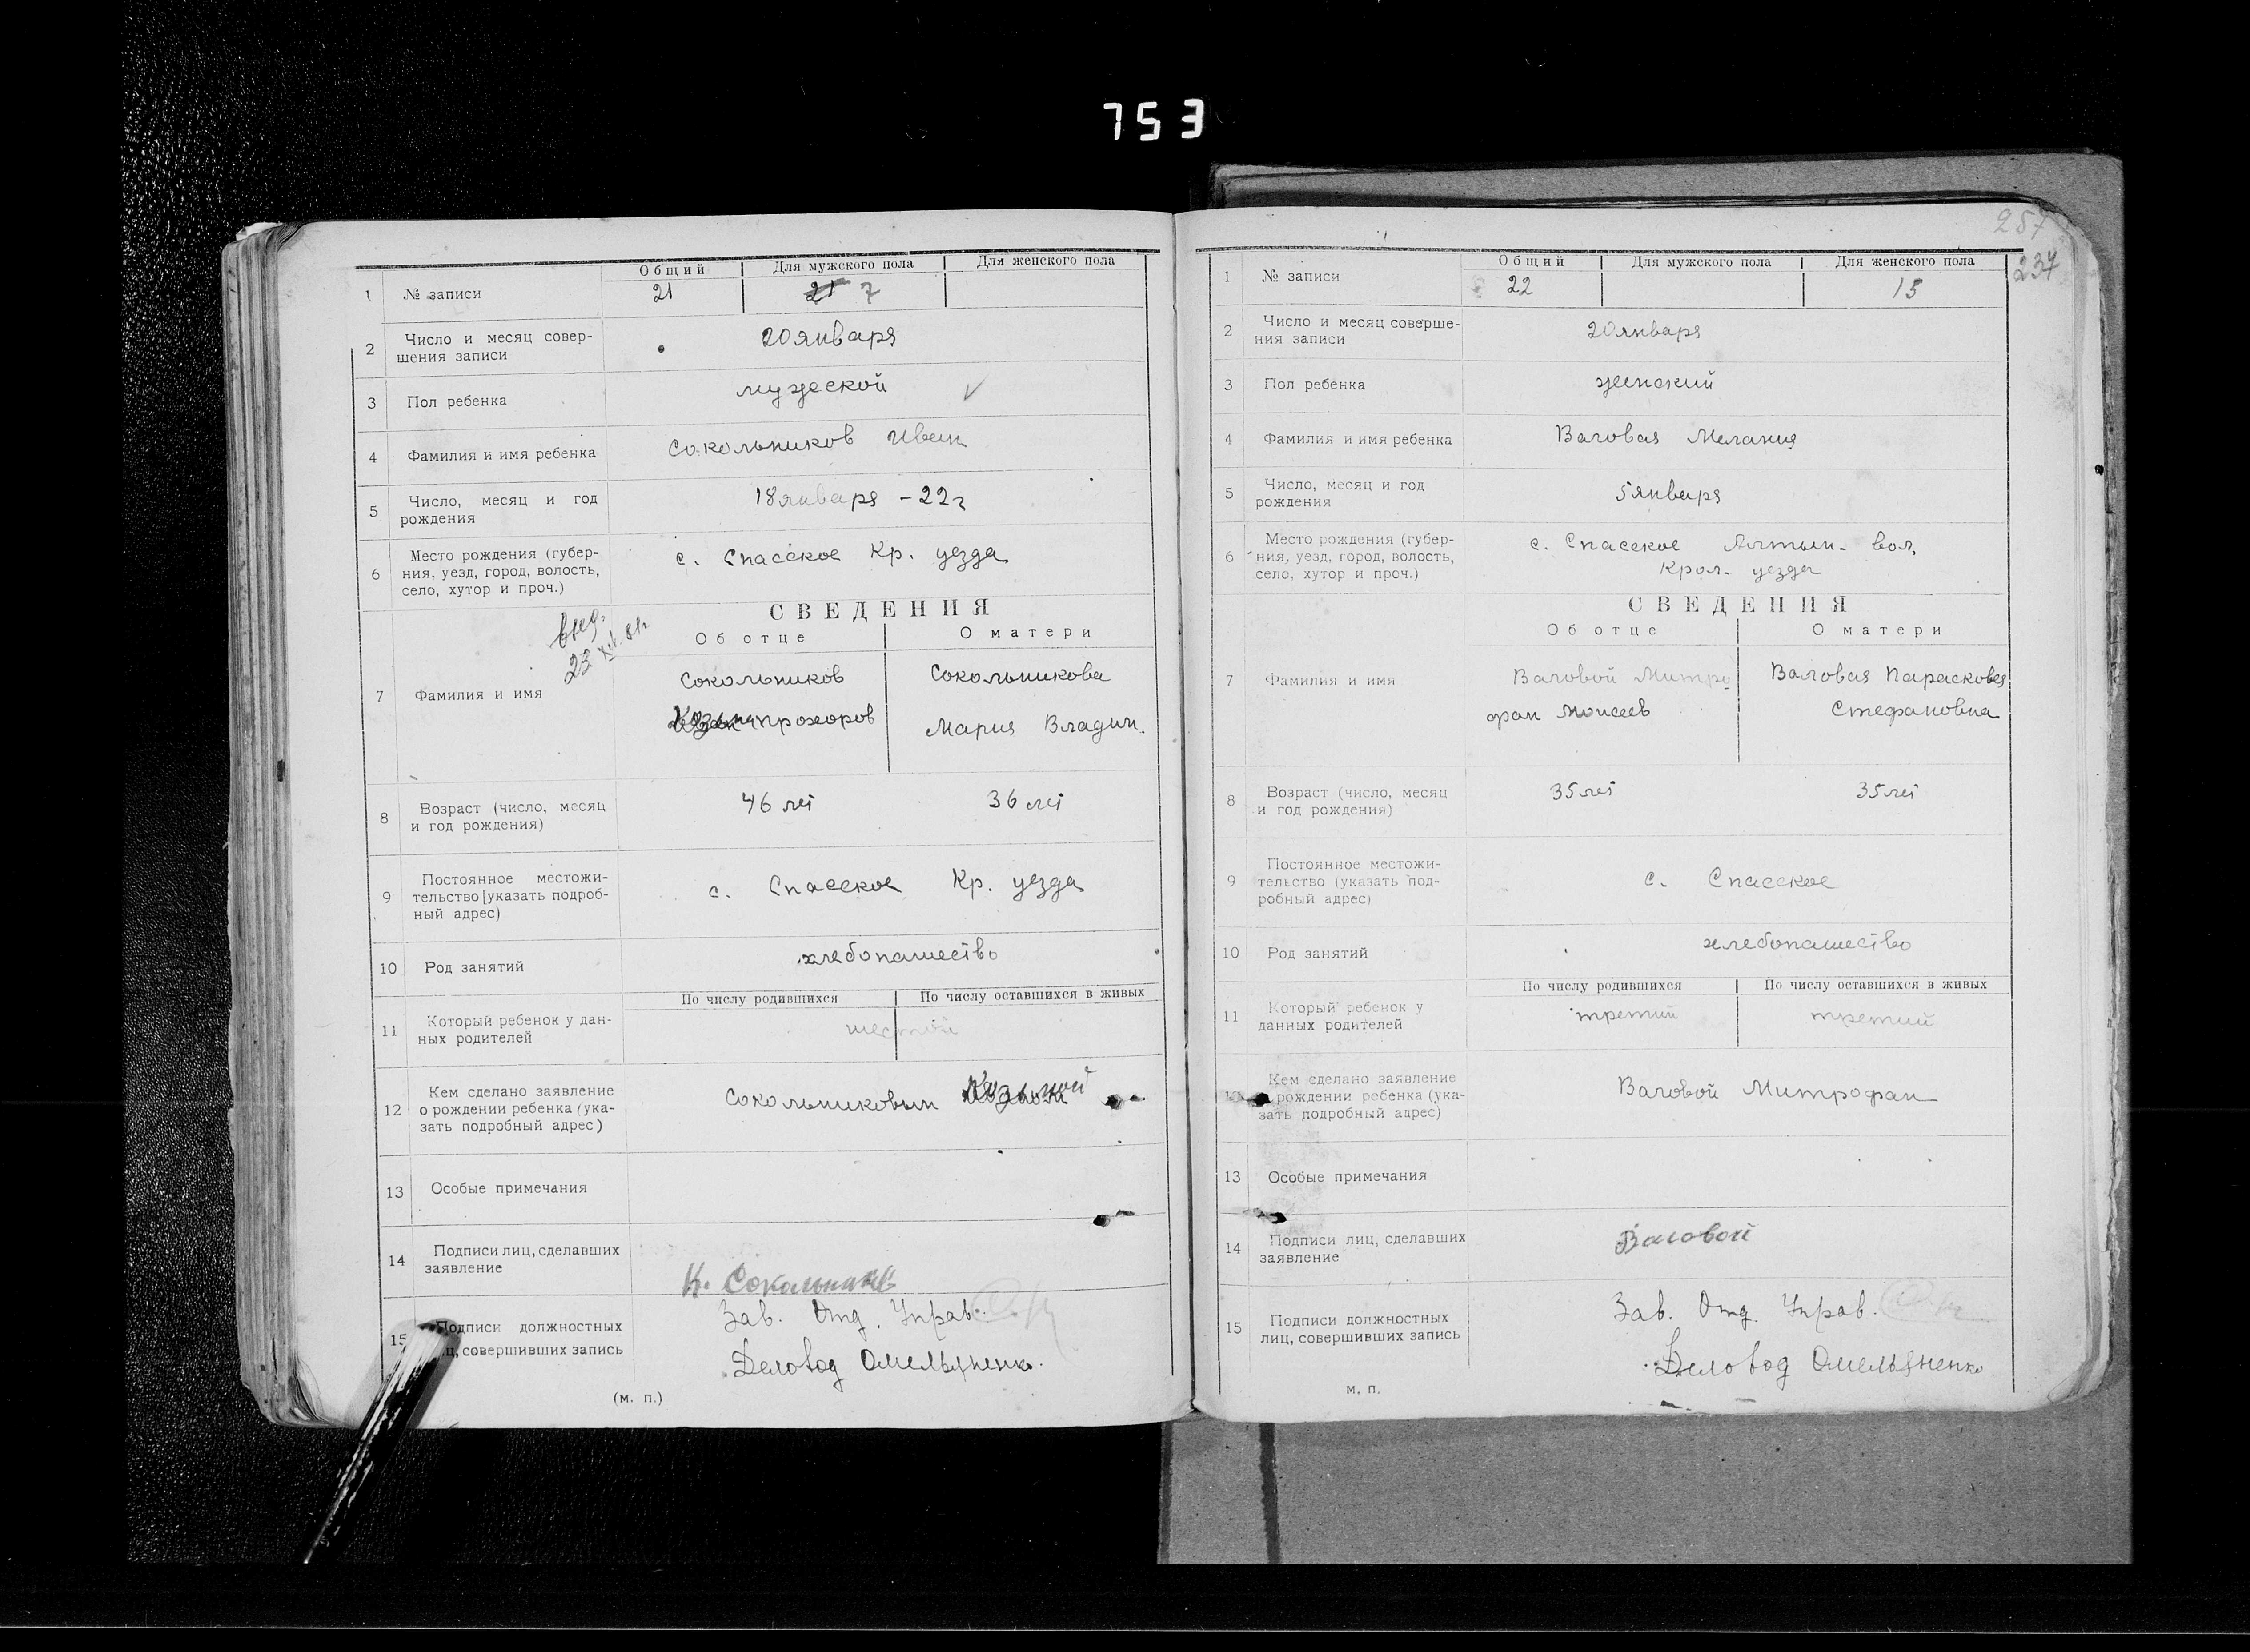 753
Общий Для мужского пола Для женского пола
1 № записи 21 21 7
2 Число и месяц совер-
шения записи 20 января
3 Пол ребенка мужеской
4 Фамилия и имя ребенка Сокольников Иван
5 Число, месяц и год
рождения 18 января - 22 г
6 Место рождения (губер-
ния, уезд, город, волость,
село, хутор и проч.) с. Спасское Кр. уезда
СВЕДЕНИЯ
Об отце О матери
23 XII. 81г.
7 Фамилия и имя Сокольников Сокольникова
Прохоров Мария Владим.
8 Возраст (число, месяц
и год рождения) 46 лет 36 лет
9 Постоянное местожи-
тельство [указать подроб-
ный адрес) с. Спасское Кр. уезда
10 Род занятий хлебопашество
По числу родившихся По числу оставшихся в живых
11 Который ребенок у дан-
ных родителей шестой
12 Кем сделано заявление
о рождении ребенка (ука-
зать подробный адрес) Сокольниковым Козьмой
13 Особые примечания
14 Подписи лиц, сделавших
заявление К. Сокольников
15 Подписи должностных
лиц, совершивших запись Зав. Отд. Управ.
Деловод Омельяненко.
(м. п.)
257
237
Общий Для мужского пола Для женского пола
1 № записи 22 15
2 Число и месяц соверше-
ния записи 20 января
3 Пол ребенка женский
4 Фамилия и имя ребенка Валовая Мелания
5 Число, месяц и год
рождения 5 января
6 Место рождения (губер-
ния, уезд, город, волость,
село, хутор и проч.) с. Спасское Алтын. вол.
Крал. уезда
СВЕДЕНИЯ
Об отце О матери
7 Фамилия и имя Валовой Митро Валовая Парасковея
фан Моисеев Стефановна
8 Возраст (число, месяц
и год рождения) 35 лет 35 лет
9 Постоянное местожи-
тельство (указать под-
робный адрес) с. Спасское
10 Род занятий хлебопашество
По числу родившихся По числу оставшихся в живых
11 Который ребенок у
данных родителей третий третий
Кем сделано заявление
о рождении ребенка (ука-
зать подробный адрес) Валовой Митрофан
13 Особые примечания
14 Подписи лиц, сделавших
заявление Валовой
15 Подписи должностных
лиц, совершивших запись Зав. Отд. Управ.
Деловод Омельяненко
м. п.